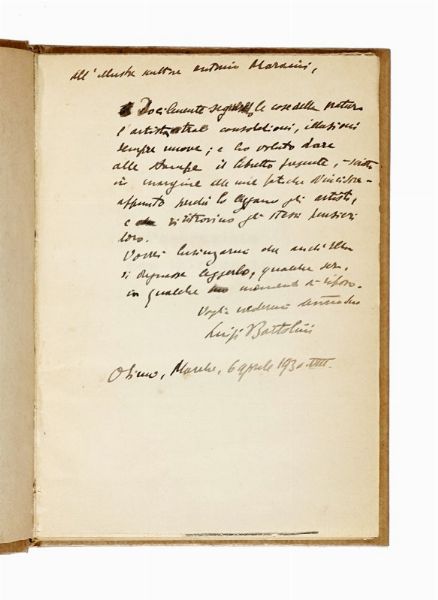 All'illustre scultore Antonio Maraini,
Docilmente segnando le cose della natura
l'artista trae consolazioni, illusioni
sempre nuove; e ho voluto dare
alle stampe il libretto presente, - scritto
in margine alle mie fatiche d'incisore -
appunto perché lo leggano gli artisti,
e vi ritrovino gli stessi pensieri
loro.
Vorrei lusingarmi che anch'Ella
si degnasse leggerlo, qualche sera,
in qualche momento di riposo.
Voglia credermi
Luigi Bartolini
Osimo, Marche, 6 aprile 1930 VIII.